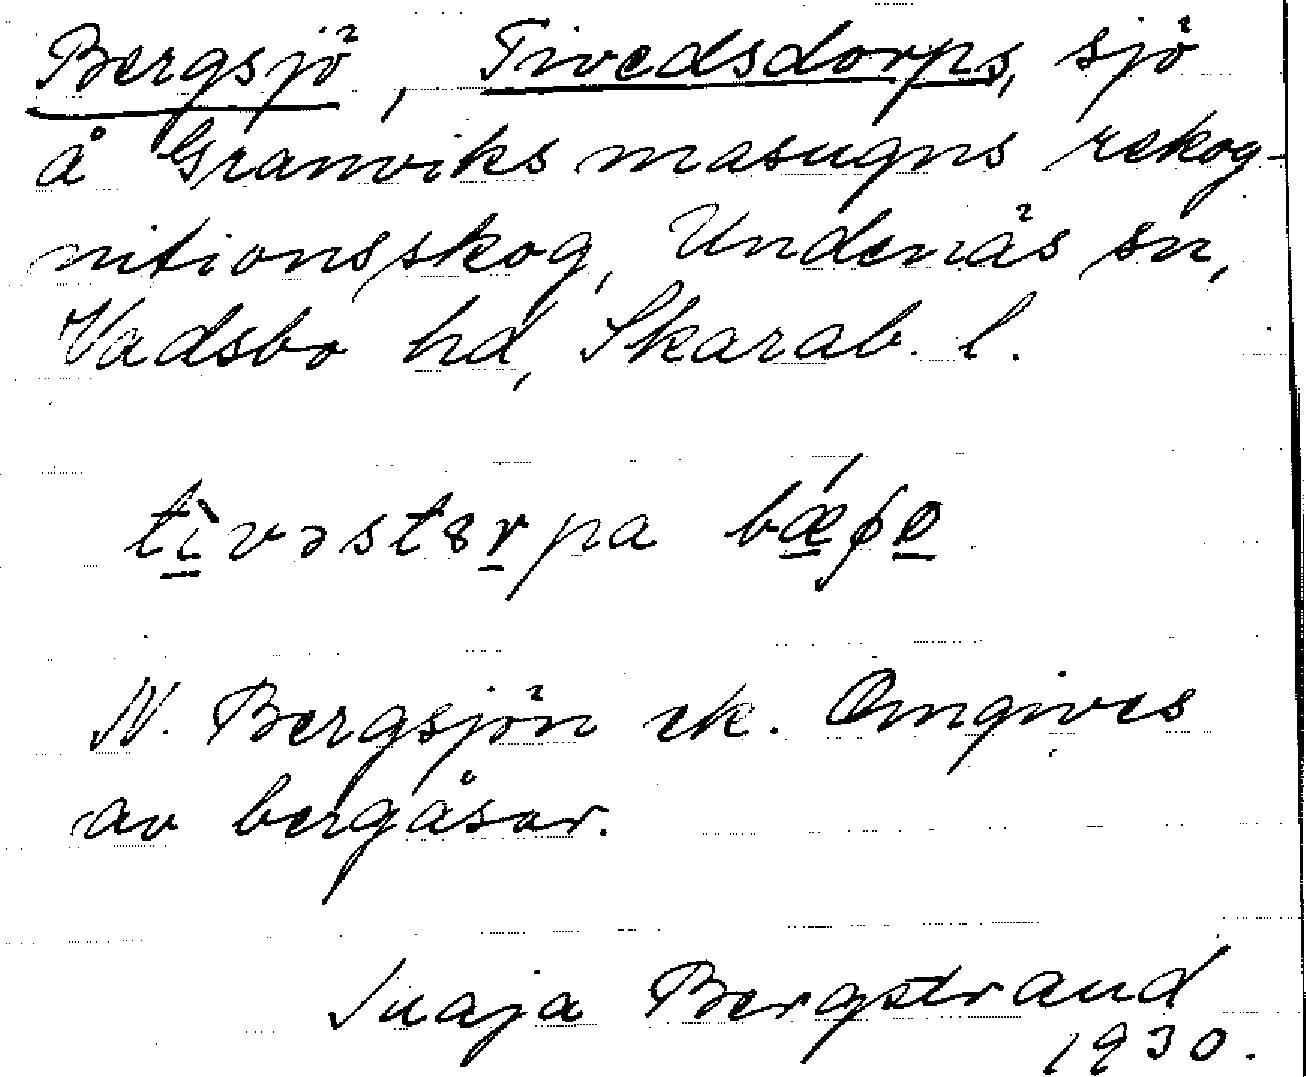 Bergsjö, Tivedsdorps, sjö
å Granviks masugns rekog-
nitionsskog, Undenäs sn,
Vadsbo hd, Skarab. l.
N. Bergsjön ek. Omgives
av bergåsar.
Bergstrand
1930.